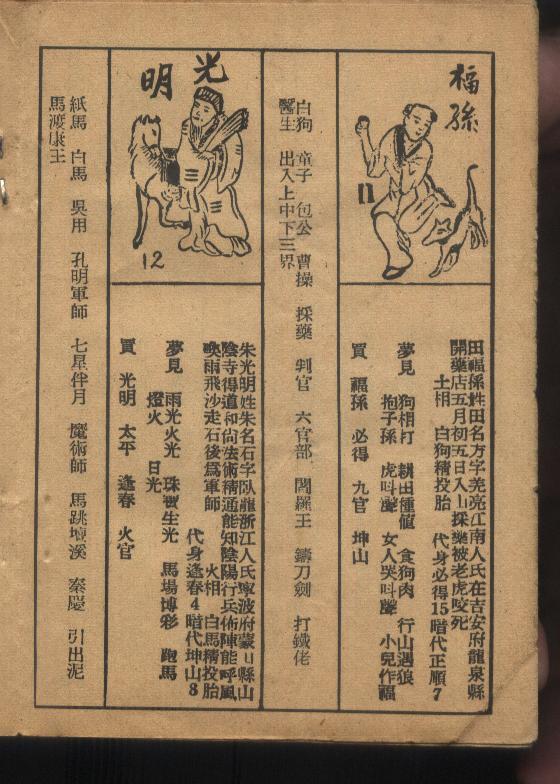 福孫
11
田福孫姓田名方字羌亮江南人氏在吉安府龍泉縣
開藥店五月初五日入山採藥被老虎咬死
土相 白狗精投胎 代身必得15暗代正順7
夢見 狗相打 耕田鍾值 食狗肉 行山遇狼
抱子孫 虎叫聲 女人哭叫聲 小兒作福
買 福孫 必得 九官 坤山
白狗 童子 包公 曹操 採藥 判官 六官部 閻羅王 鑄刀劍 打鐵佬
醫生 出入上中下三界
光明
12
朱光明姓朱名石字臥龍浙江人氏寧波府蒙山縣山
陰寺得道和尚法術精通能知陰陽行兵佈陣能呼風
喚雨飛沙走石後為軍師 火相 白馬精投胎
代身逢春4暗代坤山8
夢見 雨光火光 珠寶生光 馬場博彩 跑馬
燈火 日光
買 光明 太平 逢春 火官
紙馬 白馬 吳用 孔明軍師 七星伴月 魔術師 馬跳壇溪 秦慶 引出泥
馬渡康王